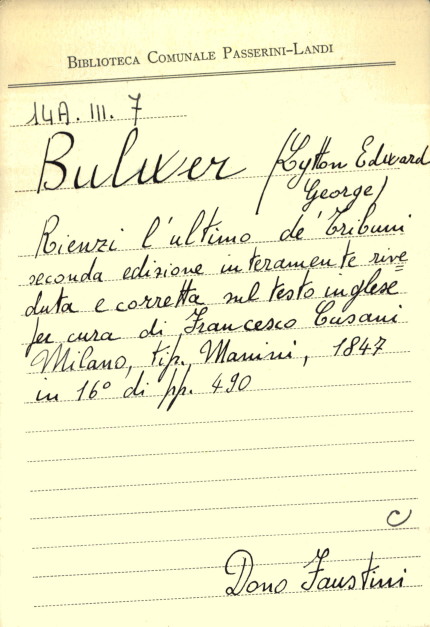 BIBLIOTECA COMUNALE PASSERINI-LANDI
14A. III. 7
Bulwer (Lytton Edward
George)
Rienzi l'ultimo de' Tribuni
seconda edizione interamente rive=
duta e corretta sul testo inglese
per cura di Francesco Cusani
Milano, tip. Manini, 1847
in 16° di pp. 490
C
Dono Faustini